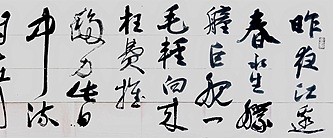 昨夜江邊
春水生艨
艟巨舰一
毛輕向来
枉费推
移力此日
中流